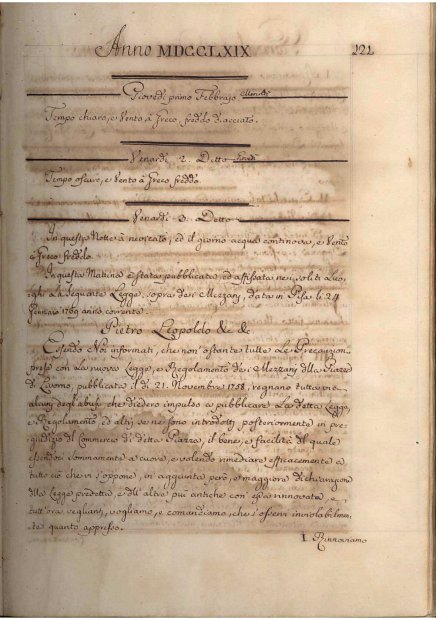 Anno MDCCLXIX
221
Giovedì primo Febbrajo
Tempo chiaro, e Vento à Greco freddo d'acciato.
Venardì 2. Detto
Tempo oscuro, e Vento à Greco freddo.
Venardì 3. Detto
In questa Notte à nevicato, ed il giorno acqua continova, e Vento
à Greco freddo.
In questa Mattina è stata pubblicata, ed affissata nei soliti Luo,
ghi la seguente Legge, sopra dei Mezzanj, data in Pisa li 24
Gennaio 1769 anno corrente.
Pietro Leopoldo &c &c.
Essendo Noi informati, che non' ostante tutte Le Precauzioni
prese con La nuova Legge, e Regolamento dei Mezzanj della Piazza
di Livorno, pubblicata il dì 21. Novembre 1758, regnano tutta via
alcuni degl'abusi che diedero impulso a pubblicare La detta Legge,
e Regolamento, ed altri se ne sono introdotti posteriormente in pre,
giudizio del Commercio di detta Piazza, il bene, e facilità del quale
essendoci sommamente a cuore, e volendo rimediare efficacemente a
tutto ciò che vi s'oppone, in aggiunta però, e maggiore dichiarazione
della Legge predetta, e dell'altre più antiche con essa rinnovata, e
tutt'ora veglianti, vogliamo, e comandiamo, che s'osservi inviolabilmen,
te quanto appresso.
I. Rinnoviamo